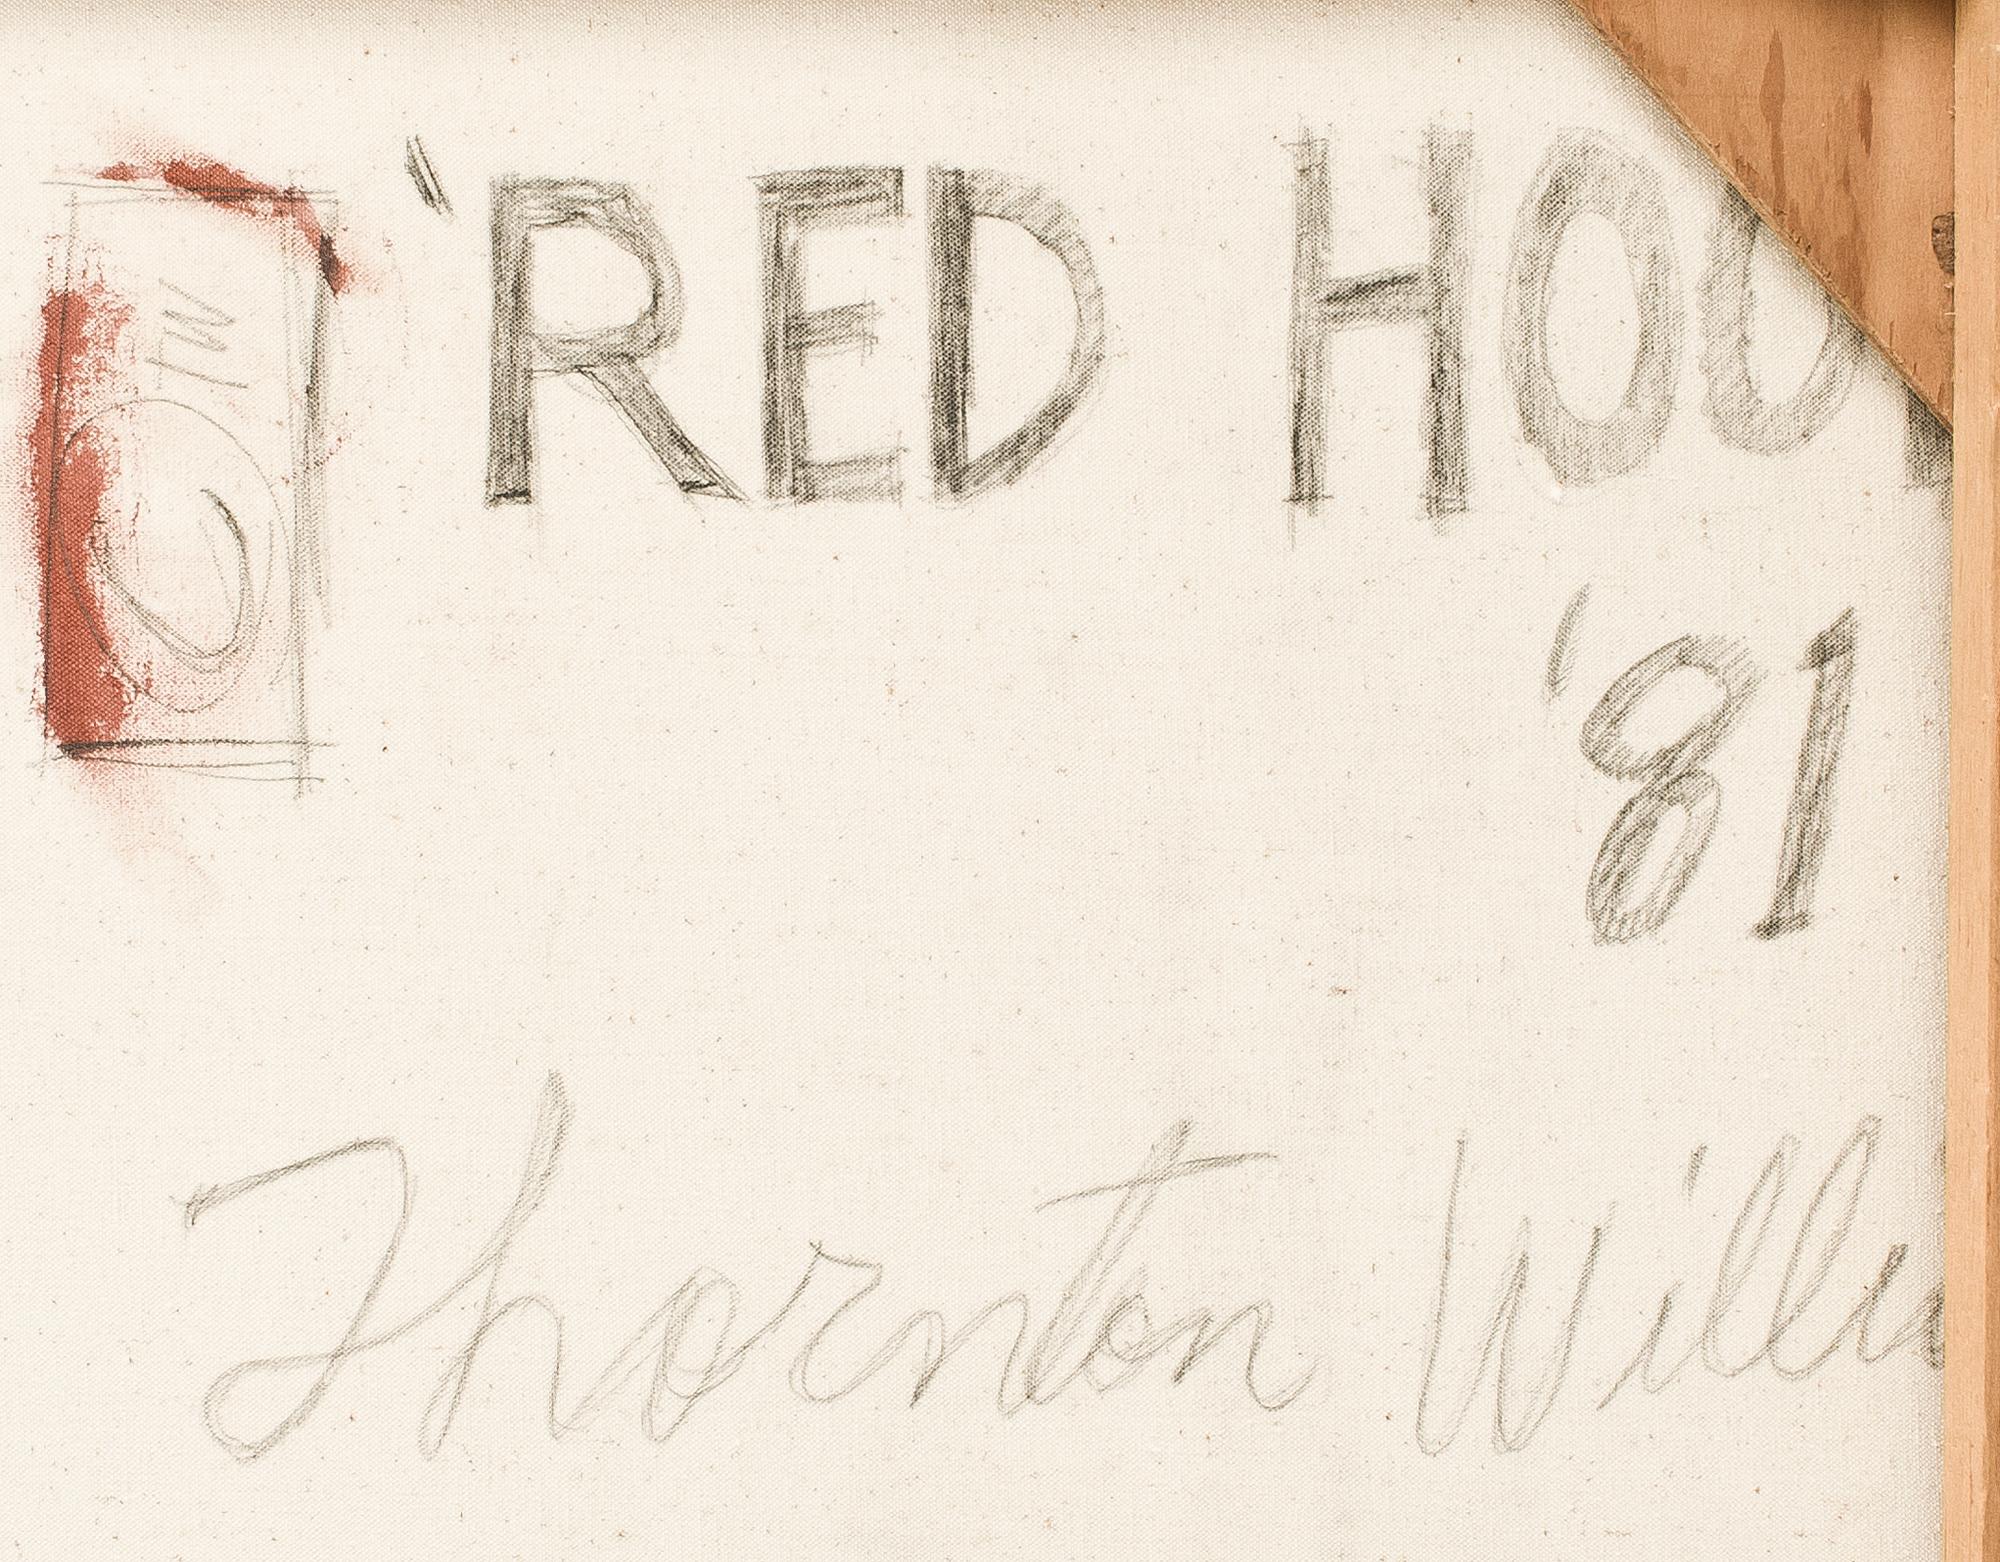 TW
'RED HOU
'81
Thornton Willi